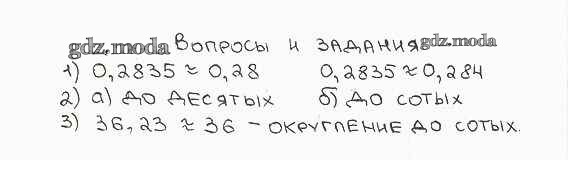 gdz.moda Вопросы и задания gdz.moda
1) 0,2835 ≈ 0,28 0,2835 ≈ 0,284
2) а) до десятых б) до сотых
3) 36,23 ≈ 36 – округление до сотых.